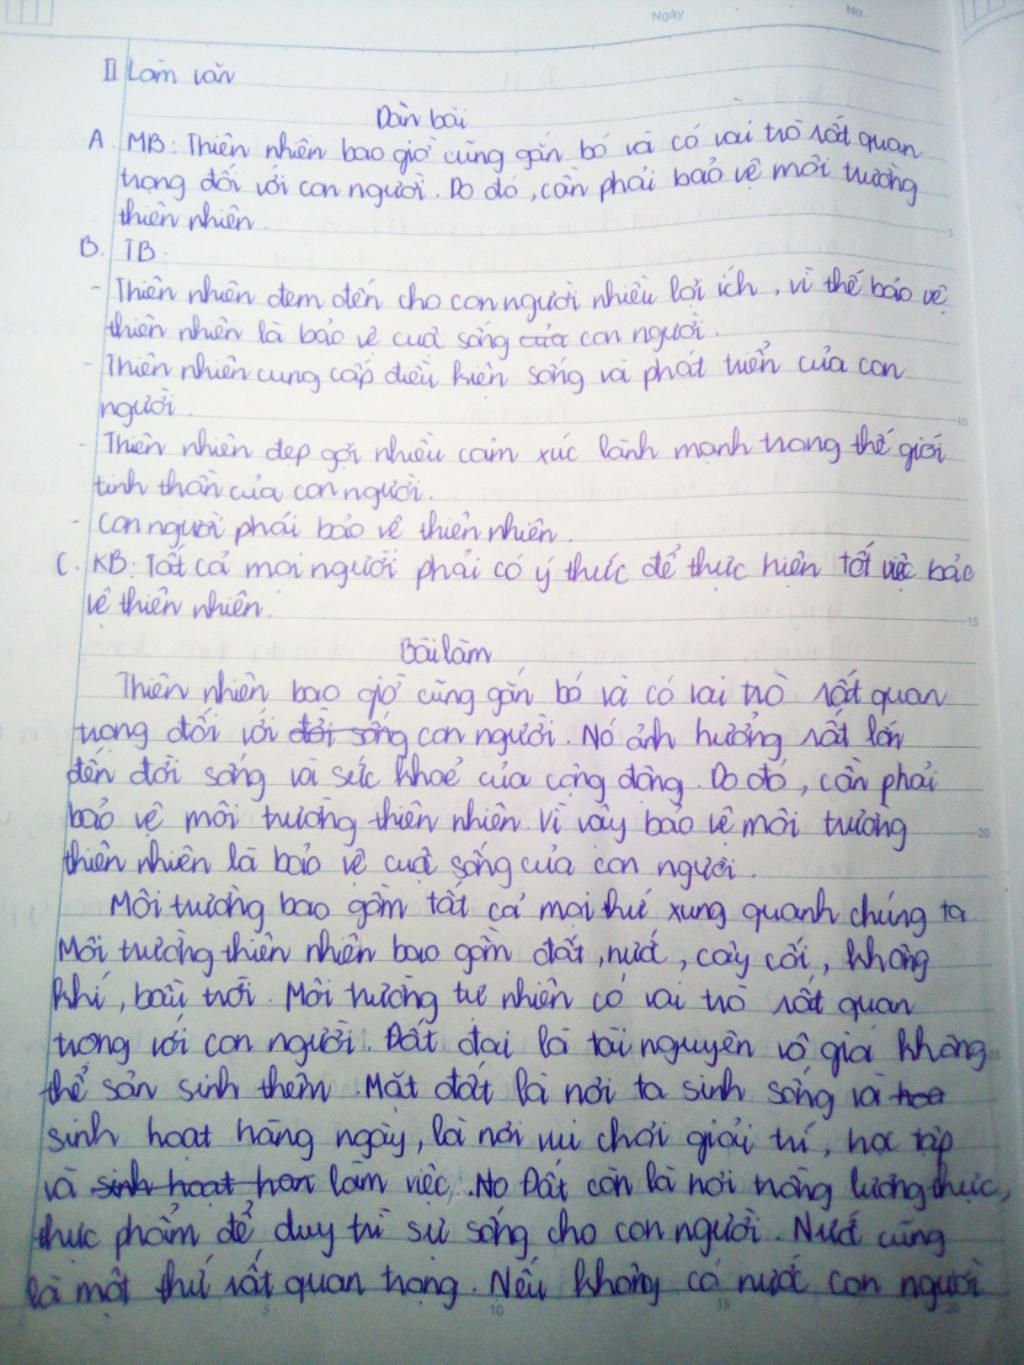 Ngày
No.
II Làm văn
Dàn bài
A. MB: Thiên nhiên bao giờ cũng gắn bó và có vai trò rất quan
trọng đối với con người. Do đó, cần phải bảo vệ môi trường
thiên nhiên.
B. TB:
- Thiên nhiên đem đến cho con người nhiều lợi ích, vì thế bảo vệ
thiên nhiên là bảo vệ cuộc sống của con người.
- Thiên nhiên cung cấp điều kiện sống và phát triển của con
người.
- Thiên nhiên đẹp gợi nhiều cảm xúc lành mạnh trong thế giới
tinh thần của con người.
- Con người phải bảo vệ thiên nhiên.
C. KB: Tất cả mọi người phải có ý thức để thực hiện tốt việc bảo
vệ thiên nhiên.
Bài làm
Thiên nhiên bao giờ cũng gắn bó và có vai trò rất quan
trọng đối với đời sống con người. Nó ảnh hưởng rất lớn
đến đời sống và sức khoẻ của cộng đồng. Do đó, cần phải
bảo vệ môi trường thiên nhiên. Vì vậy bảo vệ môi trường
thiên nhiên là bảo vệ cuộc sống của con người.
Môi trường bao gồm tất cả mọi thứ xung quanh chúng ta
Môi trường thiên nhiên bao gồm đất, nước, cây cối, không
khí, bầu trời. Môi trường tự nhiên có vai trò rất quan
trọng với con người. Đất đai là tài nguyên vô giá không
thể sản sinh thêm. Mặt đất là nơi ta sinh sống và hoa
sinh hoạt hàng ngày, là nơi vui chơi giải trí, học tập
và sinh hoạt han làm việc. No Đất còn là nơi trồng lương thực,
thực phẩm để duy trì sự sống cho con người. Nước cũng
là một thứ rất quan trọng. Nếu không có nước con người